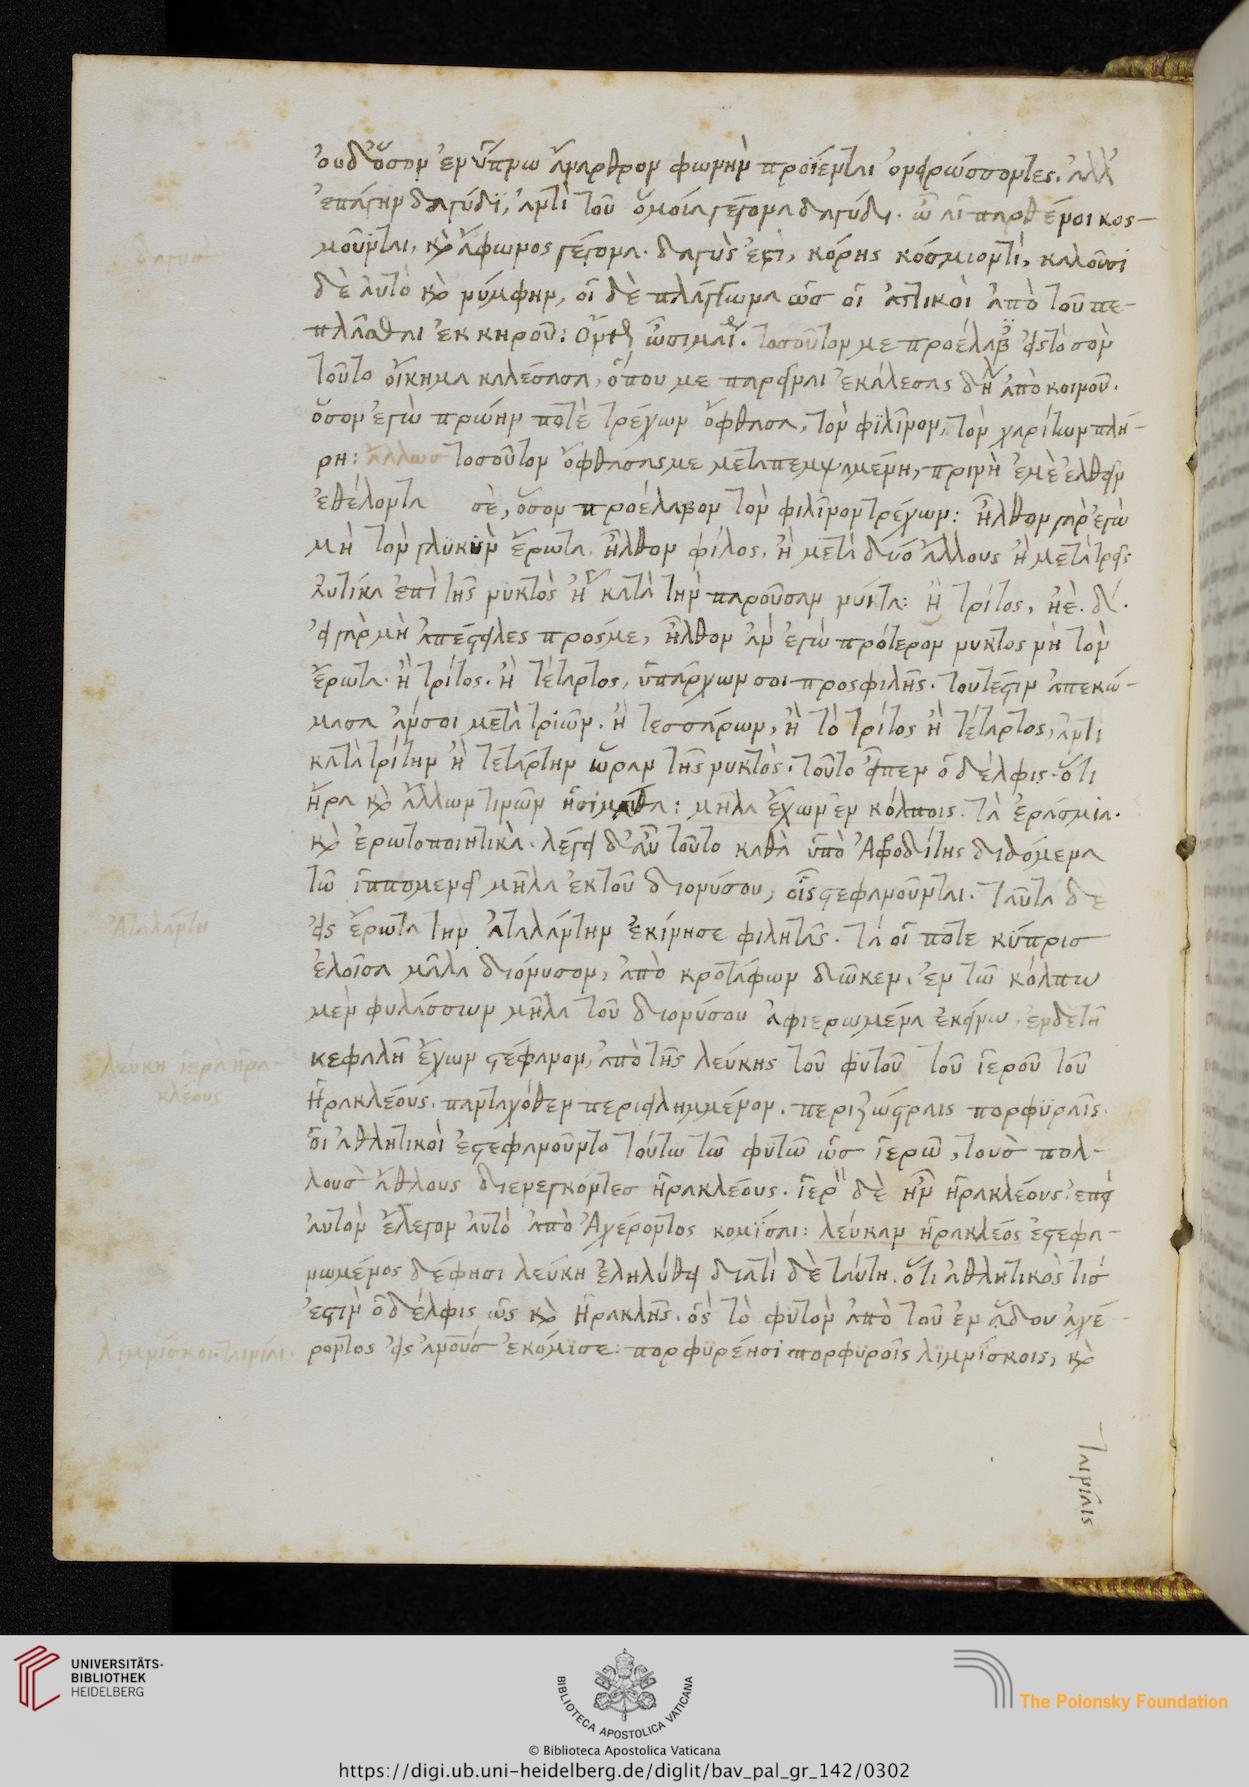 ουδ' ὅσον ἐν ὕπνω ἄναρθρον φωνὴν προΐενται ὀνειρώσσοντες. ἀλλ'
ἐπάγην δαγύδϊ, ἀντὶ τοῦ ὅμοία γέγονα δαγύδι. ὧ αἱ παρθένοι κος-
μοῦνται, καὶ ἄφωνος γέγονα. δαγὺς ἐστὶ, κόρης κόσμιον τὶ, καλοῦσι
δὲ αὐτὸ καὶ νύμφην, οἱ δὲ πλαγγόνα ὡς οἱ ἀττικοὶ ἀπὸ τοῦ πε-
πλᾶσθαι ἐκ κηροῦ: Οὕτως ὦ σιμαίθ. τοσοῦτον με προέλαβες εἰς τὸ σὸν
τοῦτο οἴκημα καλέσασα, ὅπου με παρεῖναι ἐκάλεσας δηλ ἀπὸ κοινοῦ.
ὅσον ἐγὼ πρώην ποτὲ τρέχων ἔφθασα, τὸν φϊλῖνον, τὸν χαρίτων πλή-
ρη: ἄλλως τοσοῦτον ἔφθασας με μεταπεμψαμένη, πρινὴ ἐμὲ ἐλθεῖν
ἐθέλοντα σὲ, ὅσον προέλαβον τὸν φιλῖνον τρέχων: ἦλθον γὰρ ἐγὼ
νὴ τὸν γλϋκὺν ἔρωτα. ἦλθον φίλος, ἢ μετὰ δύο ἄλλους ἢ μετὰ τρεῖς
αὐτίκα ἐπὶ τῆς νυκτὸς ἤγ κατὰ τὴν παροῦσαν νύκτα: ἢ τρίτος, ἠὲ. δ'.
εἰ γὰρ μὴ ἀπέστειλες πρός με, ἦλθον ἂν ἐγὼ πρότερον νυκτος νὴ τὸν
ἔρωτα. ἢ τρίτος. ἢ τέταρτος, ὑπάρχων σοι προσφιλῆς. τουτέστιν ἀπεκώ-
μασα ἄν σοι μετὰ τριῶν. ἢ τεσσάρων, ἢ τὸ τρίτος ἢ τέταρτος, ἀντι
κατὰ τρίτην ἢ τετάρτην ὥραν τῆς νυκτὸς. τοῦτο εἶπεν ὁ δέλφις. ὅτι
ἤρα καὶ ἄλλων τινῶν ἡ σιμαίθα: μῆλα ἔχων ἐν κόλποις. τὰ ἐράσμια.
καὶ ἐρωτοποιητικὰ. λέγει δ' ἂν τοῦτο καθὰ ὑπὸ Ἀφροδίτης διδόμενα
τῶ ἱππομενει μῆλα ἐκ τοῦ διονύσου, οἷς στεφανοῦνται. ταῦτα δε
εἰς ἔρωτα τὴν Ἀταλάντην ἐκίνησε φιλητᾶς. τά οἵ ποτε κύπρις
ἑλοῖσα μᾶλα διόνυσου, ἀπὸ κροτάφων δῶκεν. ἐν τῶ κόλπω
μὲν φυλάσσων μῆλα τοῦ διονύσου ἀφιερωμένα ἐκείνω. ἐν δε τῆ
κεφαλῆ ἔχων στέφανον, ἀπὸ τῆς λεύκης τοῦ φϋτοῦ τοῦ ἱεροῦ τοῦ
Ἡρακλέους. πανταχόθεν περιειλημμένον. περιζώστραις πορφϋραῖς.
οἱ ἀθλητικοὶ ἐστεφανοῦντο τούτω τῶ φυτῶ ὡς ἱερῶ, τους πολ-
λους ἄθλους διενεγκόντες ἡρακλέους. ἱερὰ δὲ ἦν ἡρακλέους ἐπεὶ
αυτὸν ἔλεγον αὐτό ἀπὸ Ἀχέροντος κομίσαι: λεύκαν ἡρακλέος ἐστεφα-
νωμένος δέφησι λεύκη ἐληλύθει διατί δὲ ταύτη. ὅτι ἀθλητικός τις
ἐστὶν ὁ δέλφις ὡς καὶ ἡρακλῆς. ὃς τὸ φυτὸν ἀπὸ τοῦ ἐν ἅδου ἀχέ-
ροντος εἰς ἀνοὺς ἐκόμισε: πορφϋρέησι πορφϋροῖς λϊμνΐσκοις, καὶ
ταινίαις
δαγυσ
Ἀταλάντη
λεύκη ἱερὰ ἡρα-
κλέους
λιμνίσκοι. ταινίαι.
UNIVERSITÄTS-
BIBLIOTHEK
HEIDELBERG
BIBLIOTECA APOSTOLICA VATICANA
The Polonsky Foundation
© Biblioteca Apostolica Vaticana
https://digi.ub.uni-heidelberg.de/diglit/bav_pal_gr_142/0302